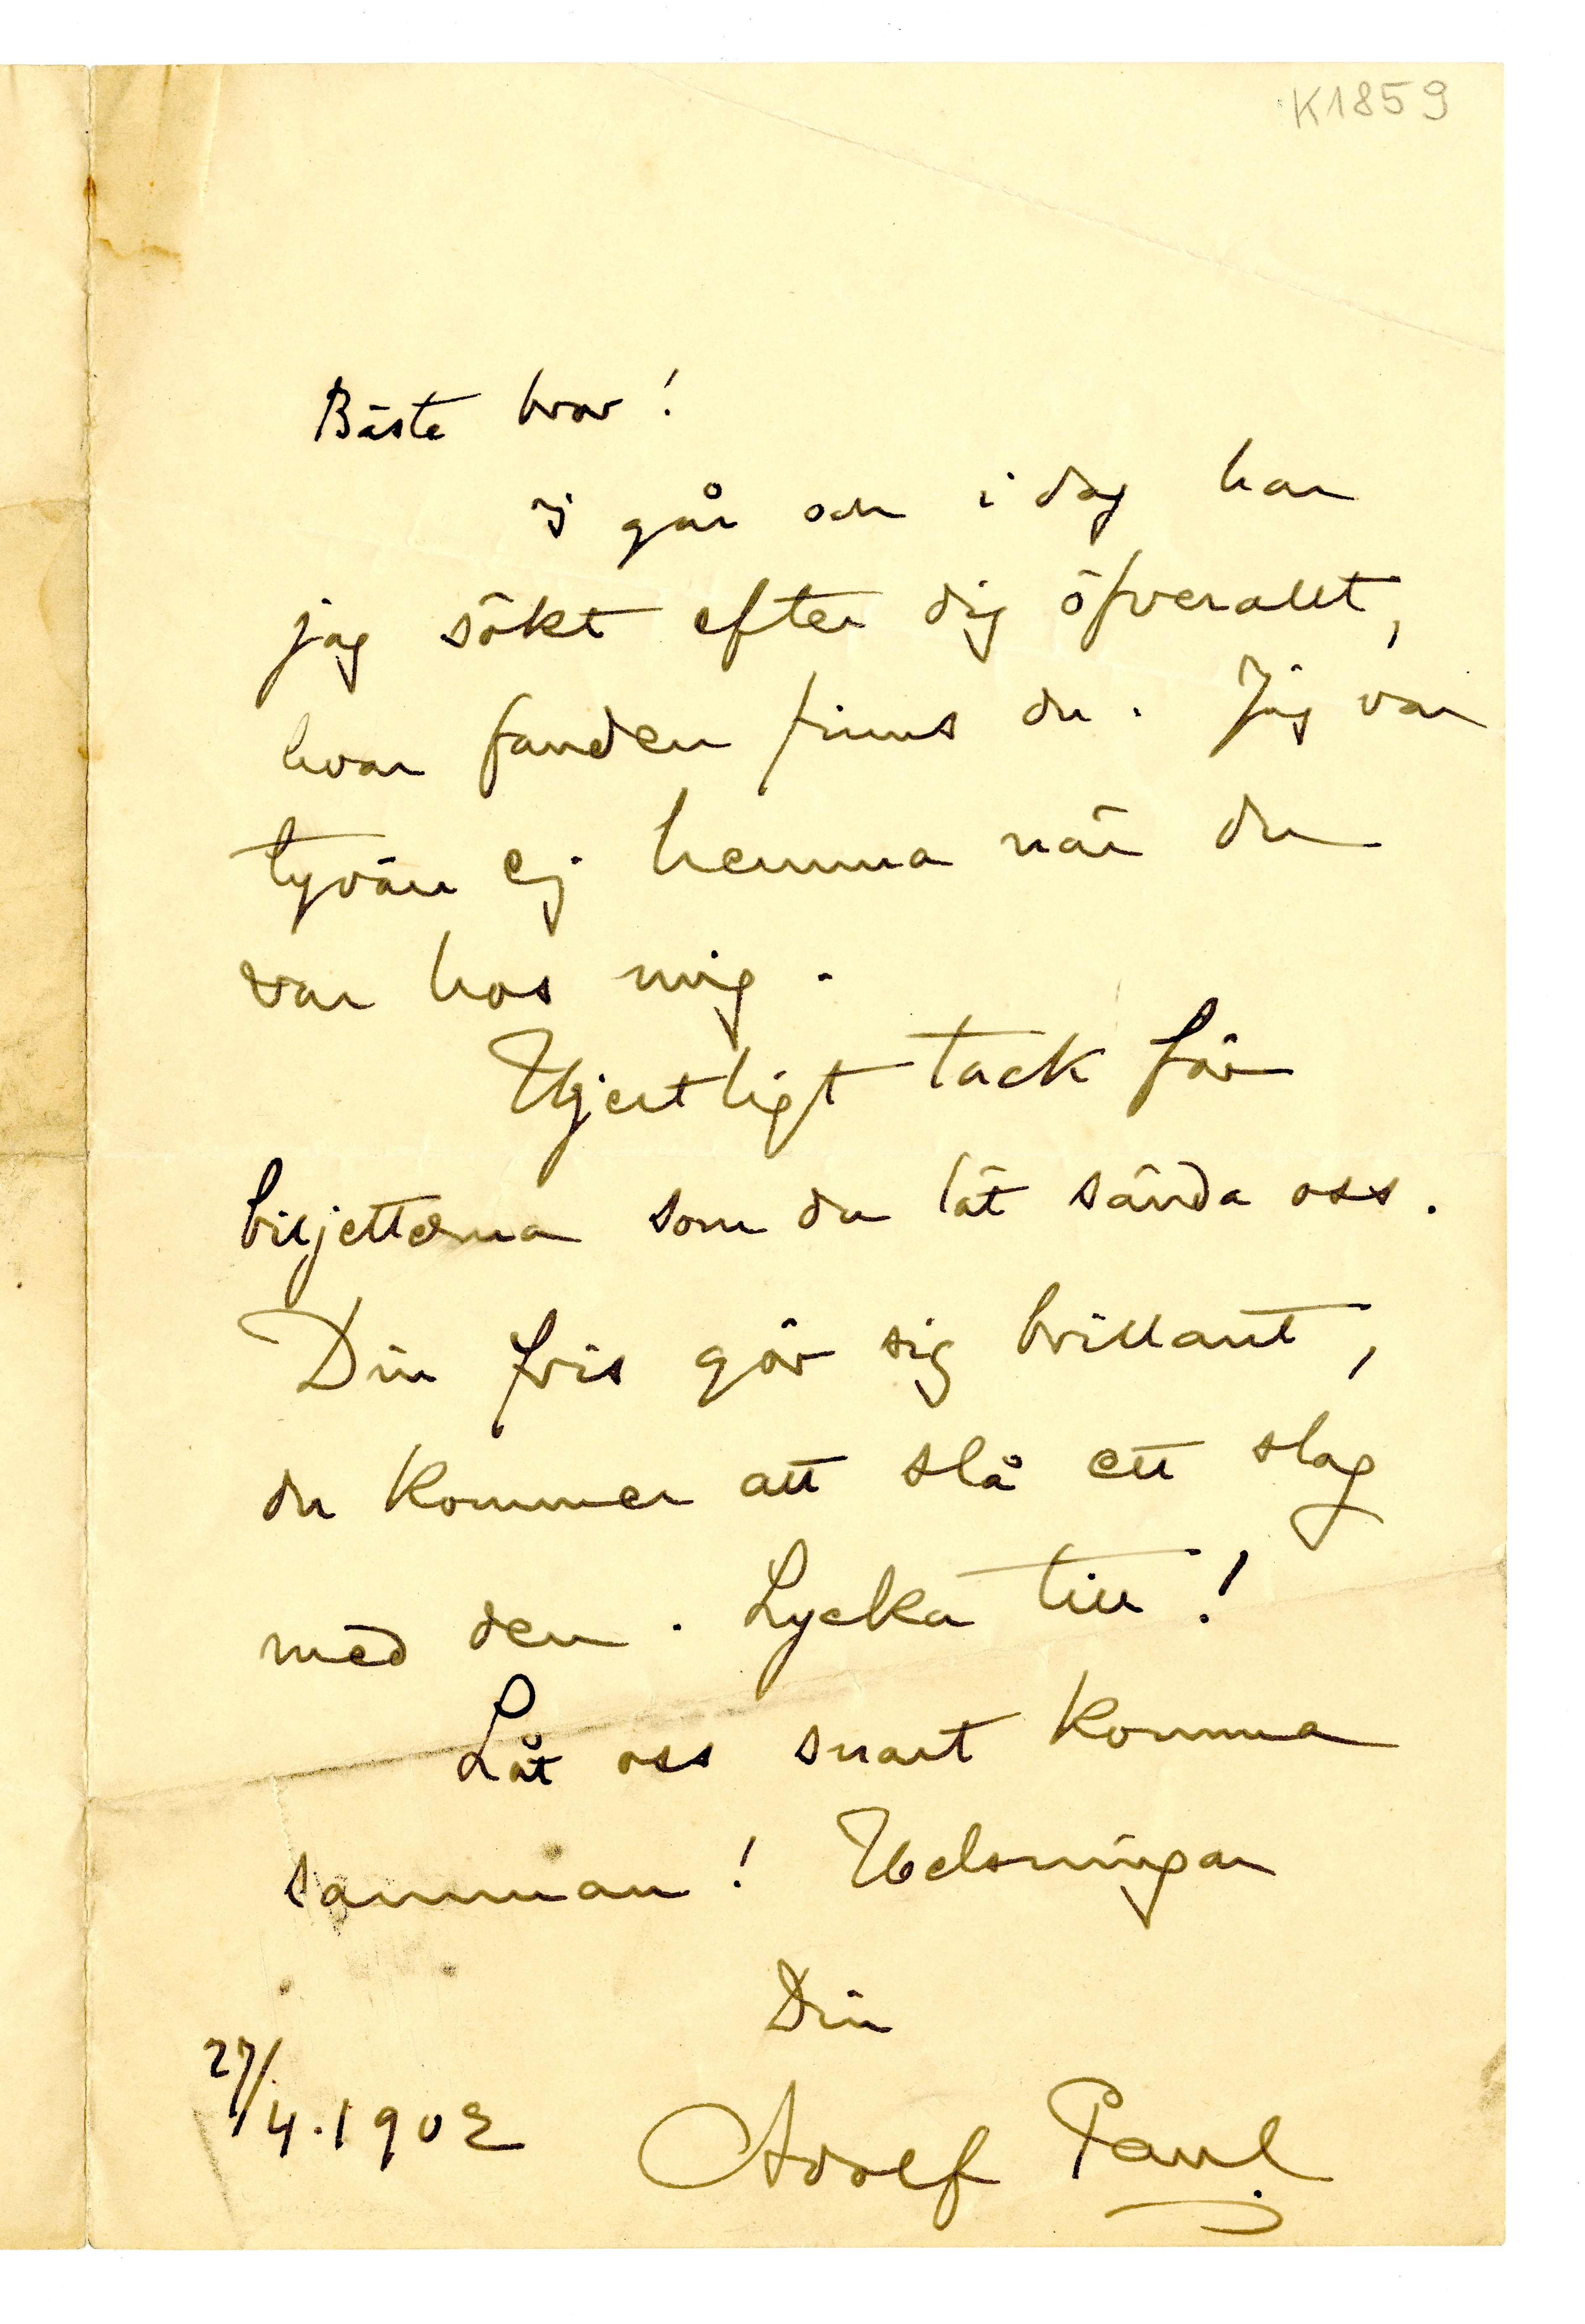 K1859
Bäste bror!
I går och i dag har
jag sökt efter dig öfverallt,
hvar fanden finns du. Jag var
tyvärr ej hemma när du
var hos mig.
Hjertligt tack för
biljetterna som du lät sända oss.
Din fris gör sig brillant,
du kommer att slå ett slag
med den. Lycka till!
Låt oss snart komma
samman! Helsningar
Din
27/4.1902 Adolf Paul